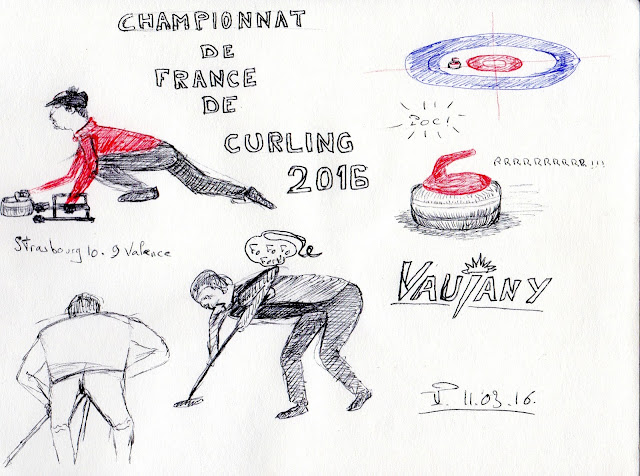 CHAMPIONNAT
DE
FRANCE
DE
CURLING
2016
POC!
RRRRRRRRRR!!!
Strasbourg 10.9 Valence
Fo Fo Fo
VAUJANY
11.03.16.